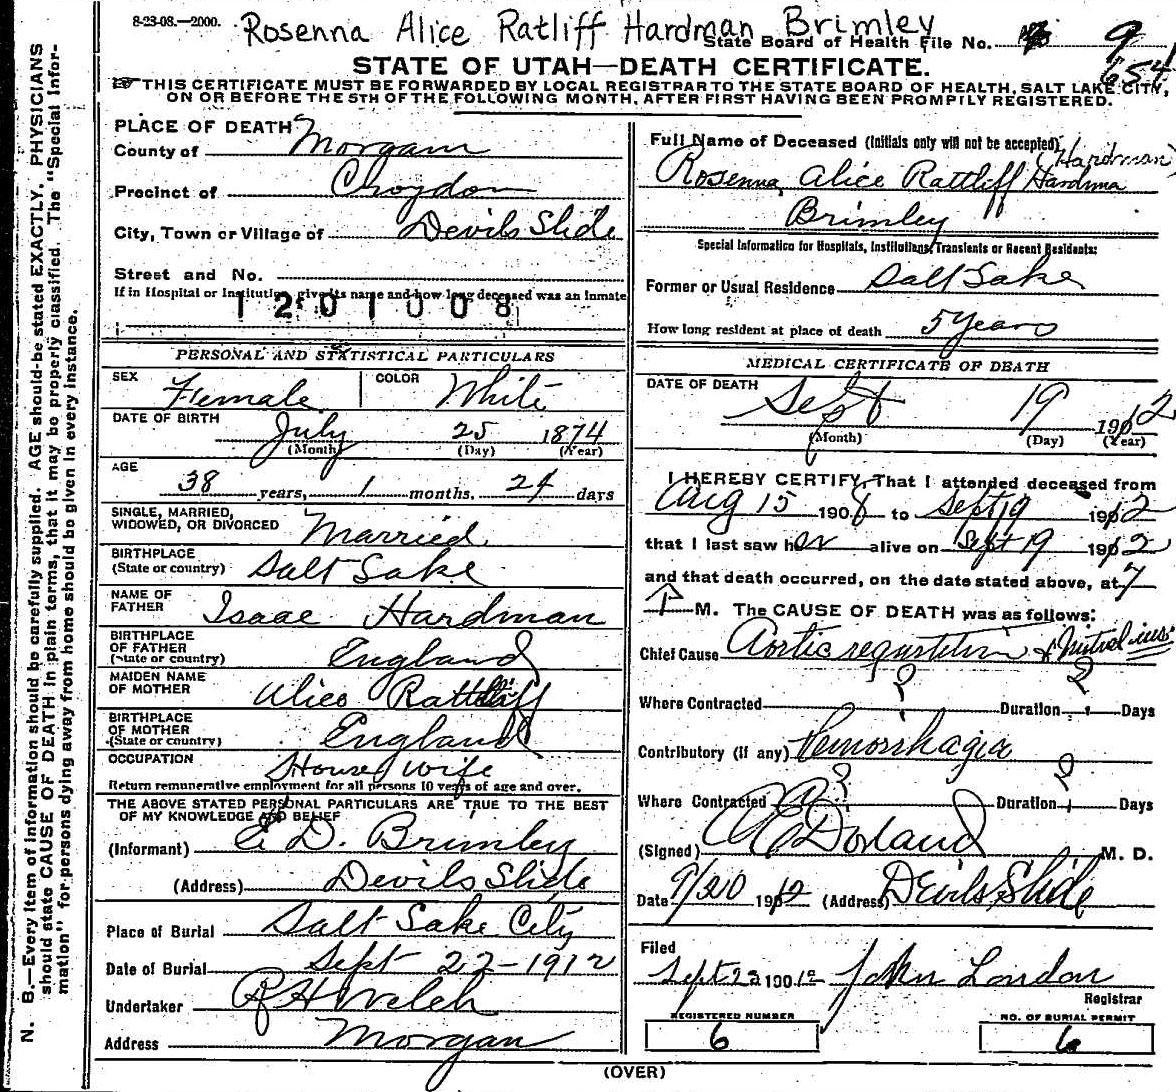 8-23-08.—2000.
Rosenna Alice Ratliff Hardman Brimley
State Board of Health File No. 9
654
STATE OF UTAH—DEATH CERTIFICATE.
THIS CERTIFICATE MUST BE FORWARDED BY LOCAL REGISTRAR TO THE STATE BOARD OF HEALTH, SALT LAKE CITY,
ON OR BEFORE THE 5TH OF THE FOLLOWING MONTH, AFTER FIRST HAVING BEEN PROMPILY REGISTERED.
PLACE OF DEATH
County of Morgan
Precinct of Croydon
City, Town or Village of Devils Slide
Street and No.
If in Hospital or Institution, give its name and how long deceased was an inmate
1201008
PERSONAL AND STATISTICAL PARTICULARS
SEX Female COLOR White
DATE OF BIRTH July 25 1874
(Month) (Day) (Year)
AGE
38 years, 1 months, 24 days
SINGLE, MARRIED,
WIDOWED, OR DIVORCED Married
BIRTHPLACE
(State or country) Salt Lake
NAME OF
FATHER Isaac Hardman
BIRTHPLACE
OF FATHER
(State or country) England
MAIDEN NAME
OF MOTHER Alice Rattliff
BIRTHPLACE
OF MOTHER
(State or country) England
OCCUPATION House wife
Return remunerative employment for all persons 10 years of age and over.
THE ABOVE STATED PERSONAL PARTICULARS ARE TRUE TO THE BEST
OF MY KNOWLEDGE AND BELIEF
(Informant) E. D. Brimley
(Address) Devils Slide
Place of Burial Salt Lake City
Date of Burial Sept 22-1912
Undertaker Welch
Address Morgan
Full Name of Deceased (Initials only will not be accepted)
(Hardman)
Rosenna Alice Rattliff Hardma
Brimley
Special Informatioo for Hospitals, Institutions, Transients or Recent Residents:
Former or Usual Residence Salt Lake
How long resident at place of death 5 years
MEDICAL CERTIFICATE OF DEATH
DATE OF DEATH
Sept 19 1912
(Month) (Day) (Year)
I HEREBY CERTIFY, That I attended deceased from
Aug 15 1908 to Sept 19 1912
that I last saw her alive on Sept 19 1912
and that death occurred, on the date stated above, at 7
P M. The CAUSE OF DEATH was as follows:
Chief Cause Aortic & Mitral
Where Contracted ? Duration ? Days
Contributory (if any) Hemorrhagia
Where Contracted ? Duration ? Days
(Signed) Dorland M. D.
Date 9/20 1912 (Address) Devils Slide
Filed
Sept 1912 John London
Registrar
REGISTERED NUMBER
6
NO. OF BURIAL PERMIT
6
(OVER)
N. B.—Every item of information should be carefully supplied. AGE should be stated EXACTLY. PHYSICIANS
should state CAUSE OF DEATH in plain terms, that it may be properly classified. The "Special Infor-
mation" for persons dying away from home should be given in every instance.